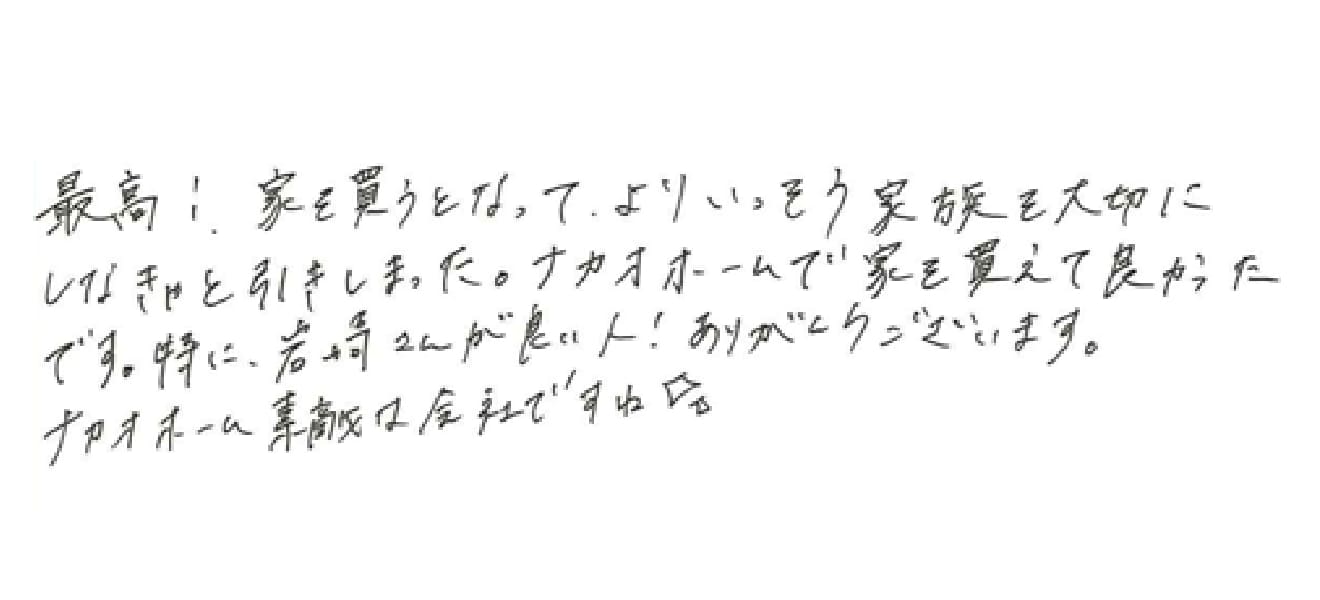 最高！家を買うとなって、よりいっそう家族を大切に
しなきゃと引きしまった。ナカオホームで家を買えて良かった
です。特に、岩崎さんが良い人！ありがとうございます。
ナカオホーム素敵な会社ですね☆